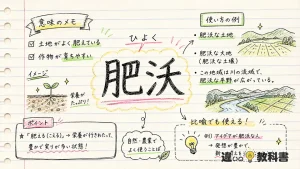 意味のメモ
☑ 土地がよく肥えている
☑ 作物が育ちやすい
イメージ
栄養が
たっぷり!
ポイント
★「肥える(こえる)」→栄養が行きわたって、
豊かで実りが多い状態!
ひよく
肥沃
自然・農業で
よく使うことば
使い方の例
✓ 肥沃な土地
✓ 肥沃な大地
(肥沃な土壌)
✓ この地域は川の流域で、
肥沃な平野が広がっている。
比喩でも使える!
例) アイデアが肥沃な人
→ 発想が豊かで、
教科書